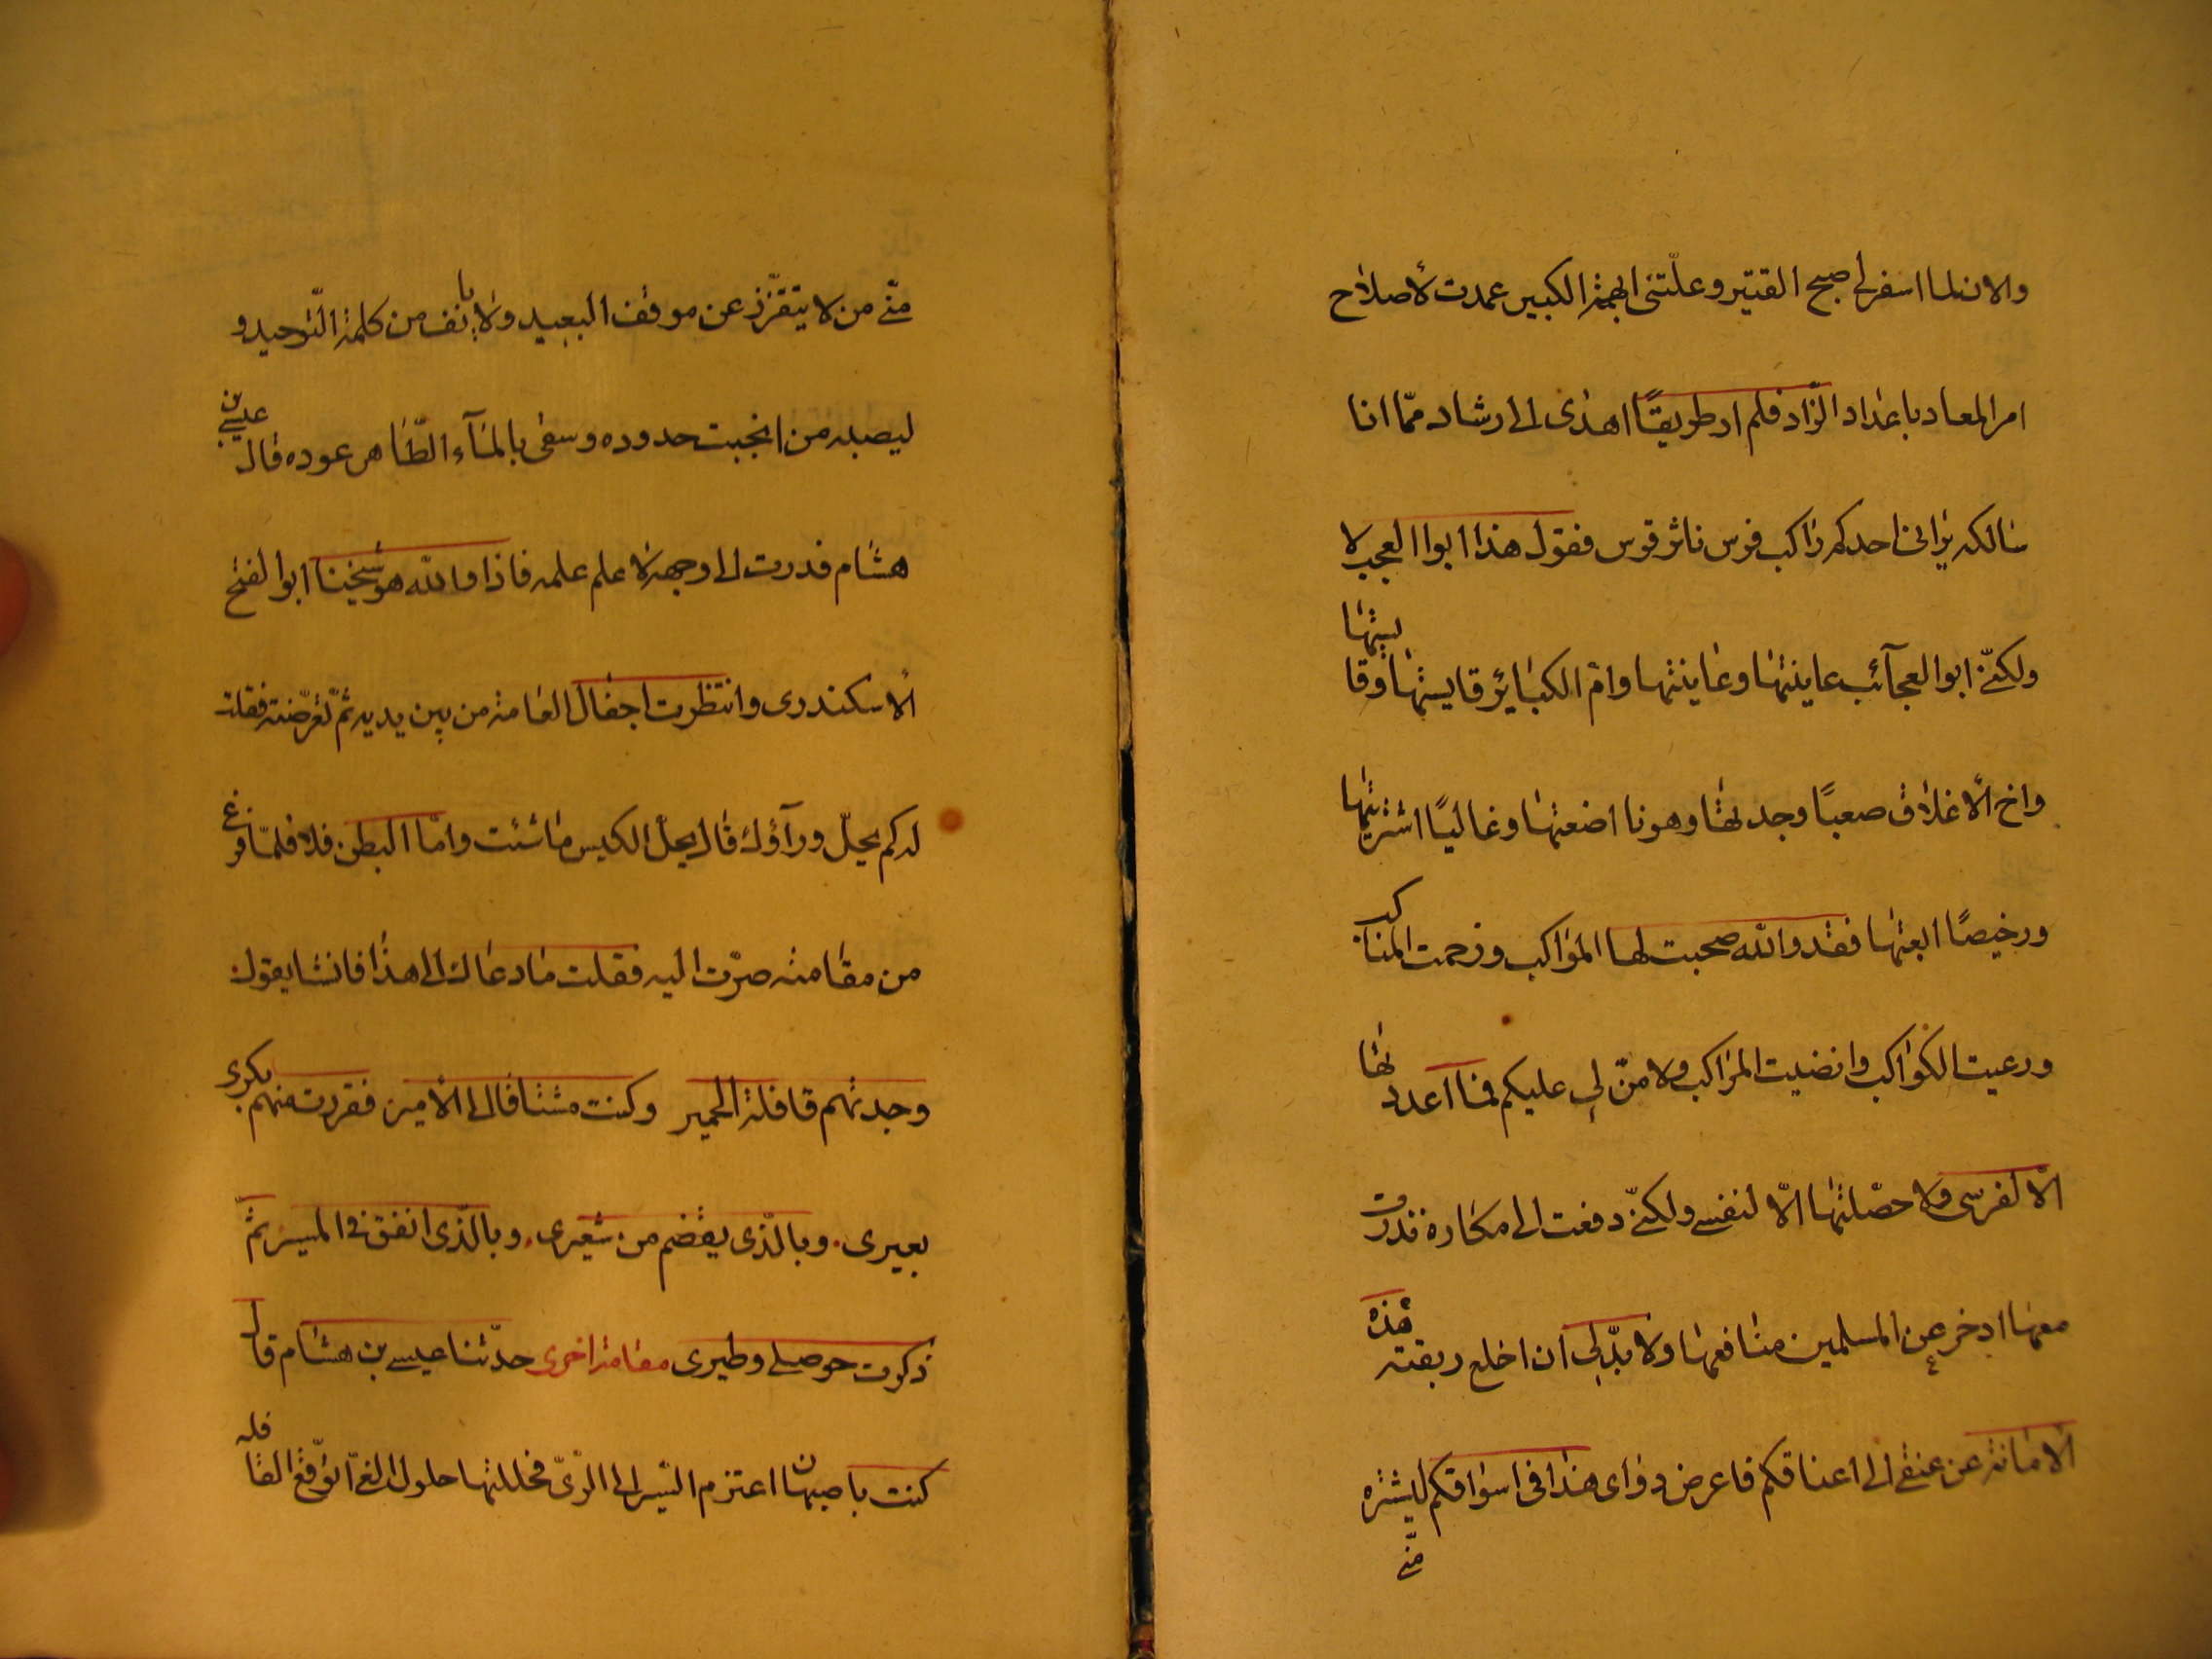 والان لما اسفر لى صبح القتير وعلّتنى ابهة الكبير عمدت لأصلاح
امر المعاد باعداد الزّاد فلم ار طريقًا اهدى الى رشاد ممّا انا
سالكه يرانى احدكم راكب فرس ناثر قوس فيقول هذا ابوا العجب لا
ولكنّى ابوا العجآئب عاينتها وعاينتها وامّ الكبائر قايستها وقا يستها
واخ الأغلاق صعبًا وجدتها وهونا اضعتها وغاليًا اشتريتها
ورخيصًا ابعتها فقد والله صحبت لها المواكب وزحمت المناكب
ورعيت الكواكب وانضيت المراكب ولا منّ لى عليكم فما اعددتها
الّا لفرسى ولا حصّلتها الّا لنفسى ولكنّى دفعت الى مكاره نذرت
معها ادخر عن المسلمين منافعها ولا بدّ لى ان اخلع ربقته هذه
الأمانة عن عنقى الى اعناقكم فاعرض دواى هذا فى اسواقكم ليشتره
منّى
منّى من لا يتقزّز عن موقف العبيد ولا يانف من كلمة التّوحيد و
ليصبه من انجبت حدوده وسقى بالمآء الطّاهر عوده قال عيسى بن
هشام فدرت الى وجهه لا علم علمه فاذا والله هو شيخنا ابوا الفتح
الأسكندرى وانتظرت اجفال العامة من بين يديه ثمّ تعرّضته فقلت
له كم يحلّ ورآؤك قال يحلّ الكيس ما شئت وامّا البطن فلا فلمّا فرغ
من مقامته صرت اليه فقلت ما دعاك الى هذا فانشا يقول
وجدتهم قافلة الحمير وكنت مشتاقا الى الأمير فقررت منهم بكرى
بعيرى . وبالّذى يقضم من شعيرى . وبالّذى انفق فى المسير ثمّ
ذكرت حوصلى وطيرى مقامة اخرى حدّثنا عيسى بن هشام قال
كنت باصبهان اعتزم السّير الى الرّىّ فحللتها حلول الفىّ اتوقّع القافله